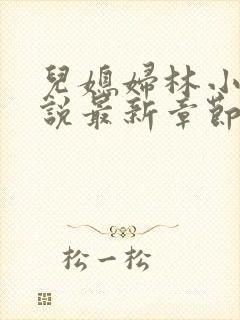 兒媳婦林小
說最新章節
松一松